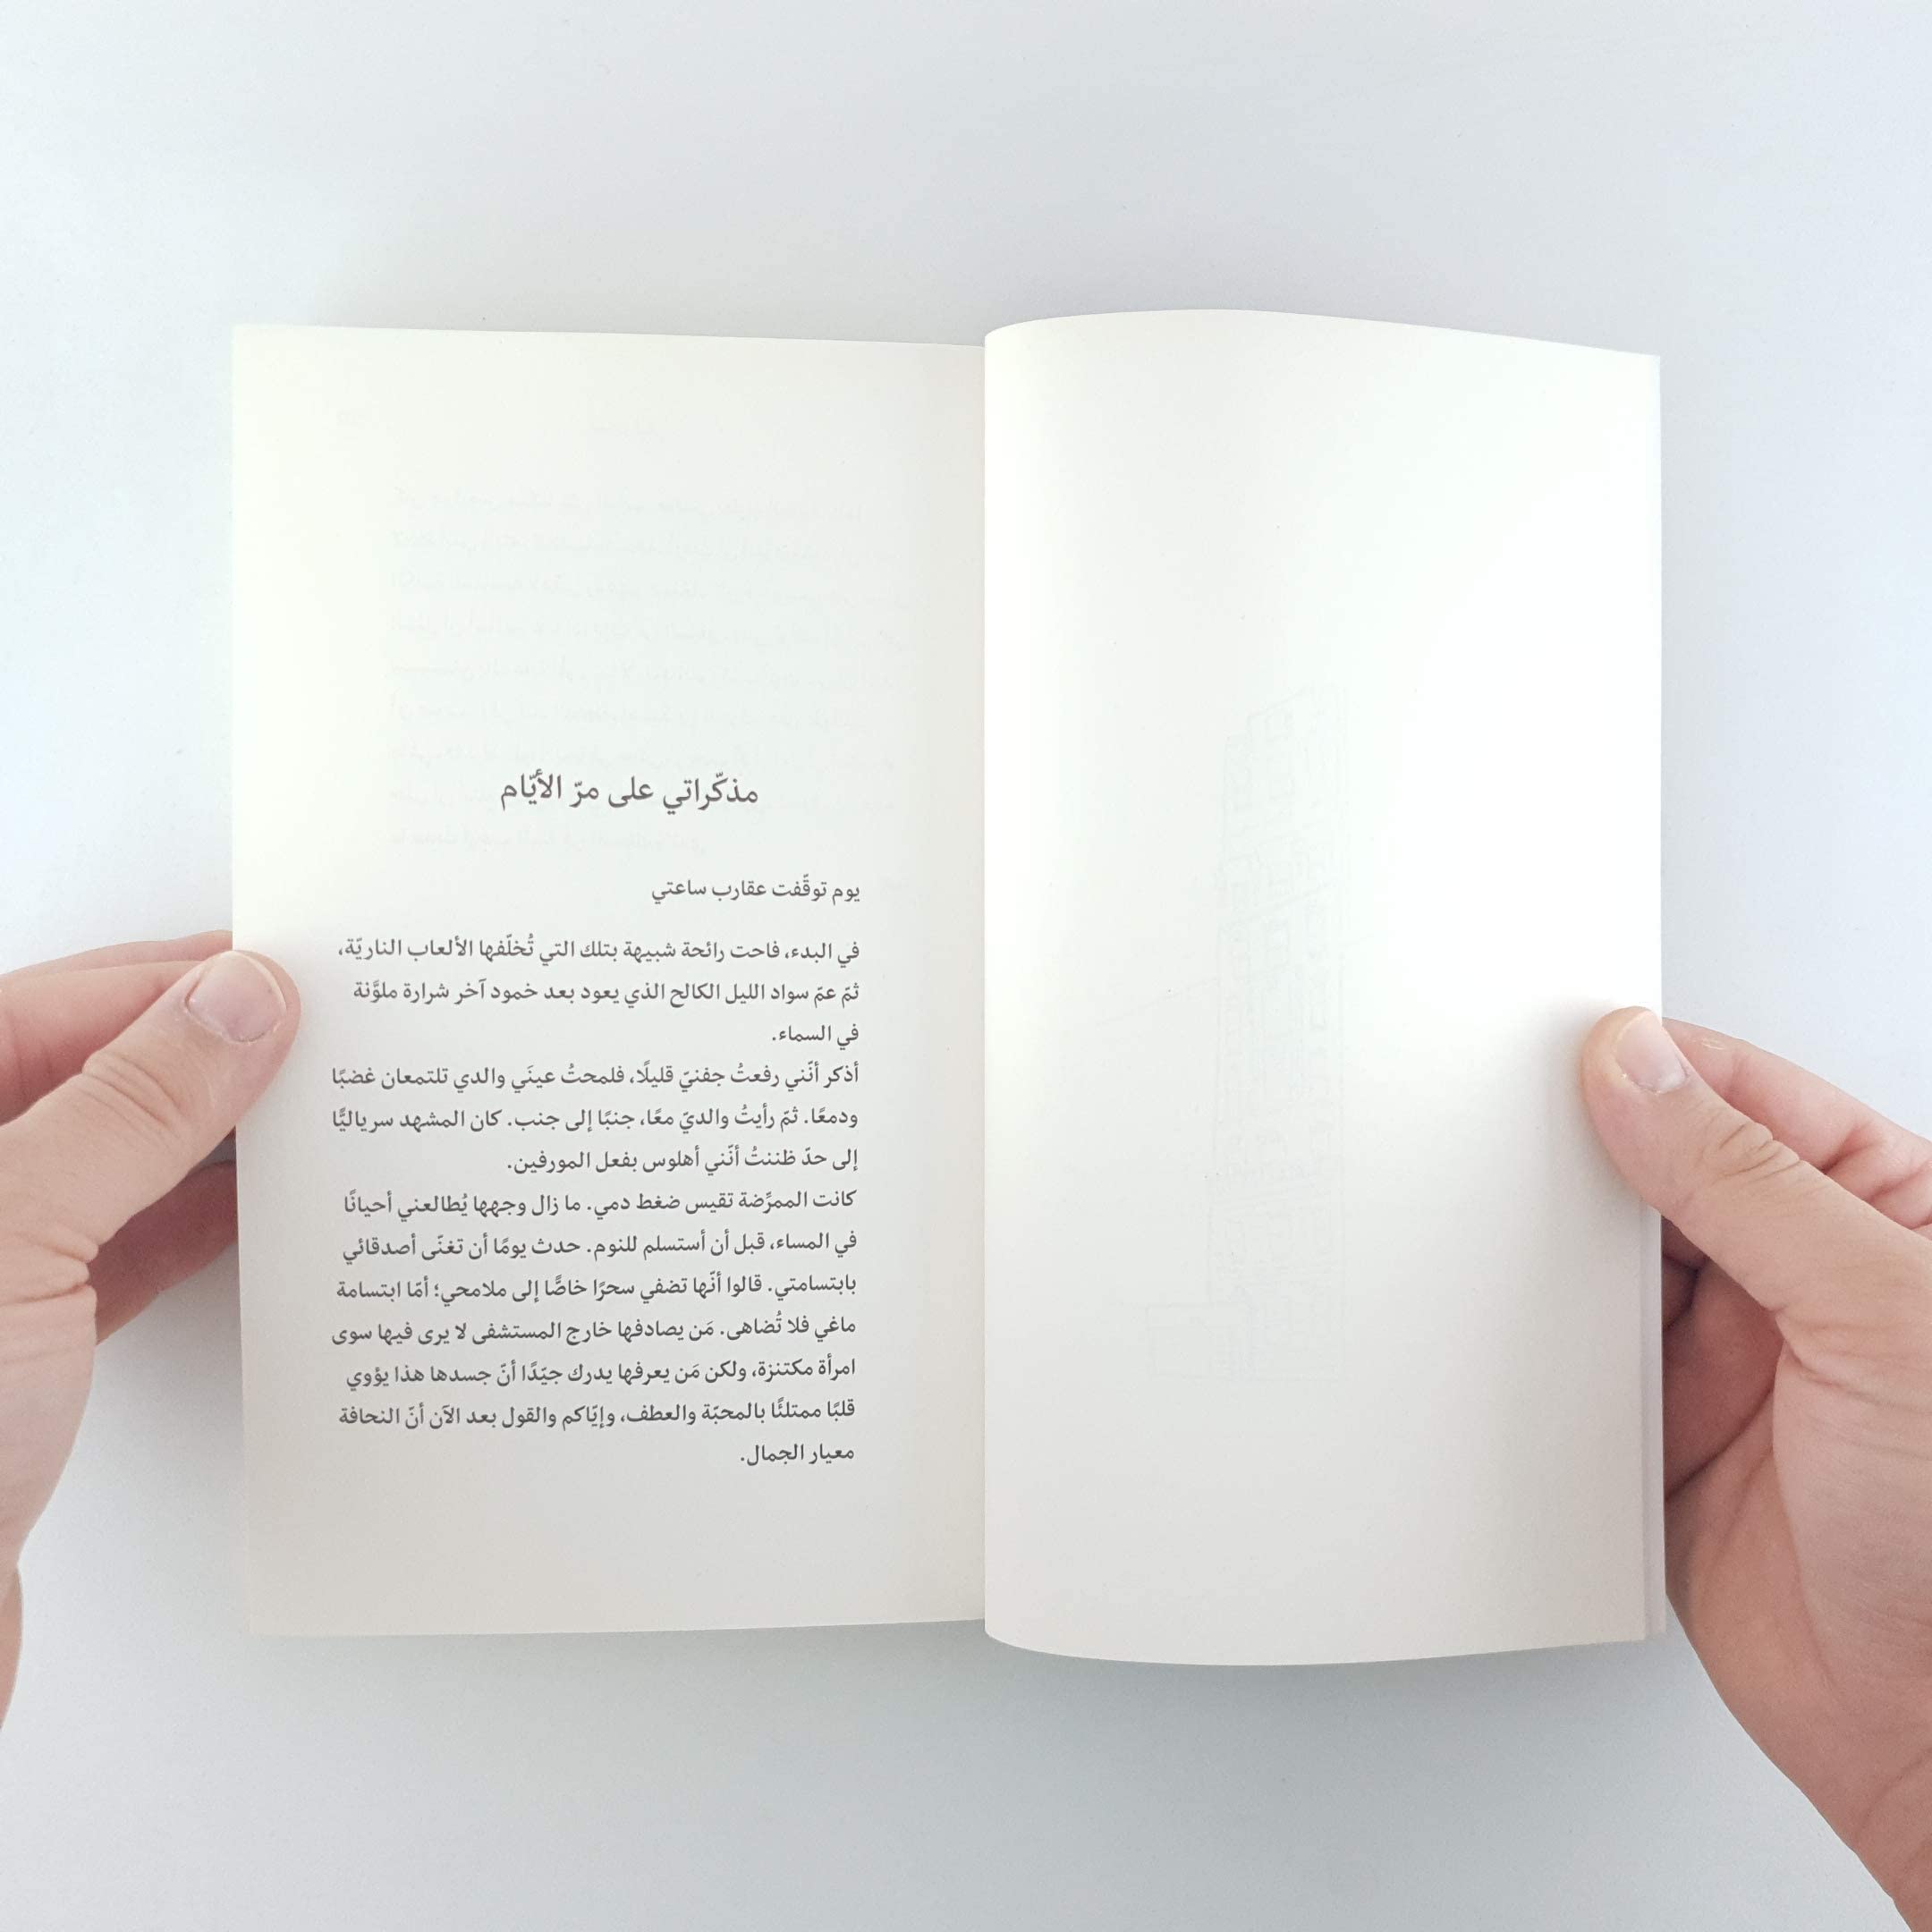 مذكّراتي على مرّ الأيّام
يوم توقّفت عقارب ساعتي
في البدء، فاحت رائحة شبيهة بتلك التي تُخلّفها الألعاب الناريّة،
ثمّ عمّ سواد الليل الكالح الذي يعود بعد خمود آخر شرارة ملوَّنة
في السماء.
أذكر أنّني رفعتُ جفنيّ قليلًا، فلمحتُ عينَي والدي تلتمعان غضبًا
ودمعًا. ثمّ رأيتُ والديّ معًا، جنبًا إلى جنب. كان المشهد سرياليًّا
إلى حدّ ظننتُ أنّني أهلوس بفعل المورفين.
كانت الممرِّضة تقيس ضغط دمي. ما زال وجهها يُطالعني أحيانًا
في المساء، قبل أن أستسلم للنوم. حدث يومًا أن تغنّى أصدقائي
بابتسامتي. قالوا أنّها تضفي سحرًا خاصًّا إلى ملامحي؛ أمّا ابتسامة
ماغي فلا تُضاهى. مَن يصادفها خارج المستشفى لا يرى فيها سوى
امرأة مكتنزة، ولكن مَن يعرفها يدرك جيّدًا أنّ جسدها هذا يؤوي
قلبًا ممتلئًا بالمحبّة والعطف، وإيّاكم والقول بعد الآن أنّ النحافة
معيار الجمال.